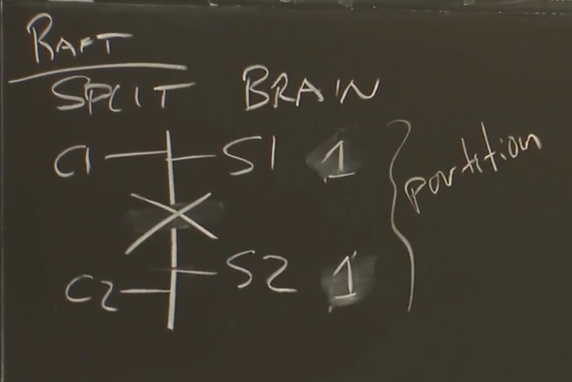 RAFT
SPLIT BRAIN
C1 S1 1
partition
C2 S2 1